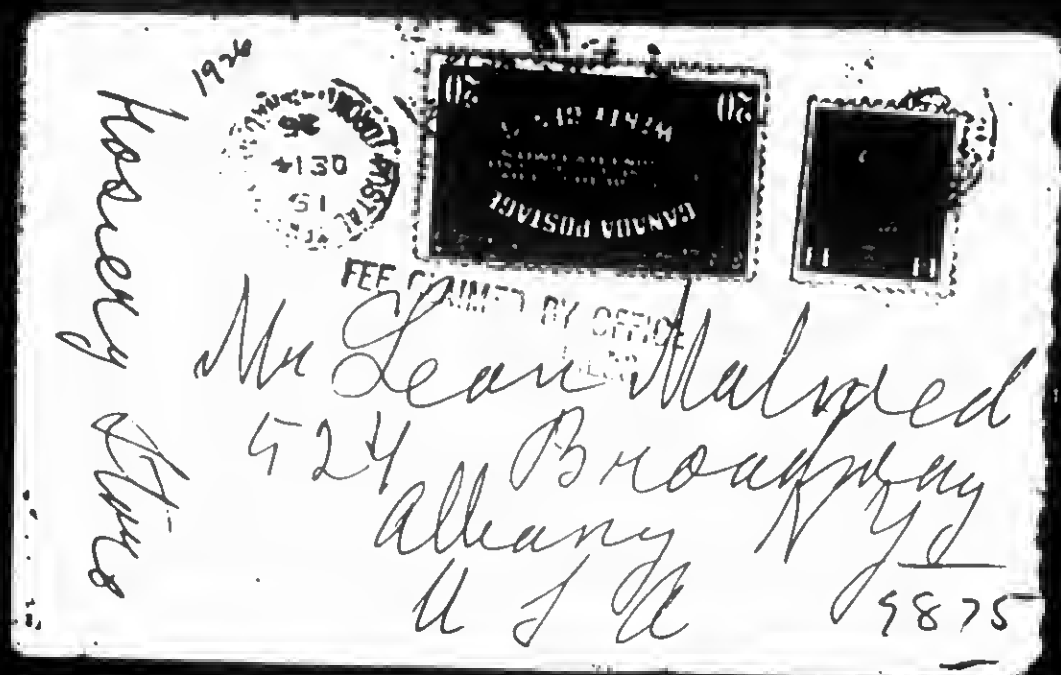 1926
hosiery
20 20
CANADA POSTAGE
FEE CLAIMED BY OFFICE
Mr Leon Malmed
524 Broadway
Albany N Y
U S A
9875